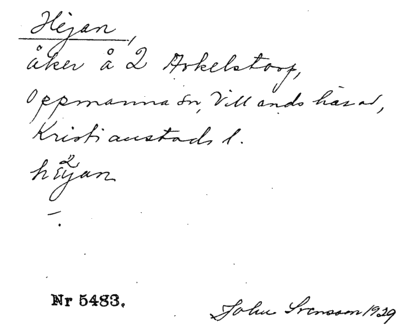 Hejan,
åker å 2 Arkelstorp,
Oppmanna sn, Villands härad,
Kristianstads l.
2
hejan
–.
Nr 5483.
John Svensson 1929